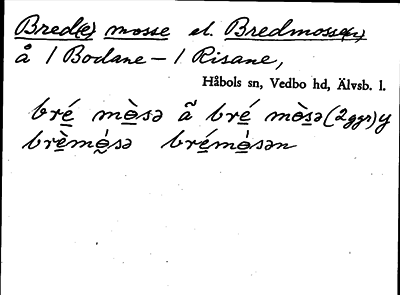 Bred(e) mosse el. Bredmosse(n)
å 1 Bodane – 1 Risane,
Håbols sn, Vedbo hd, Älvsb. l.
bré mòsə ã bré mòsə (2ggr) y
brèmòsə brémòsən